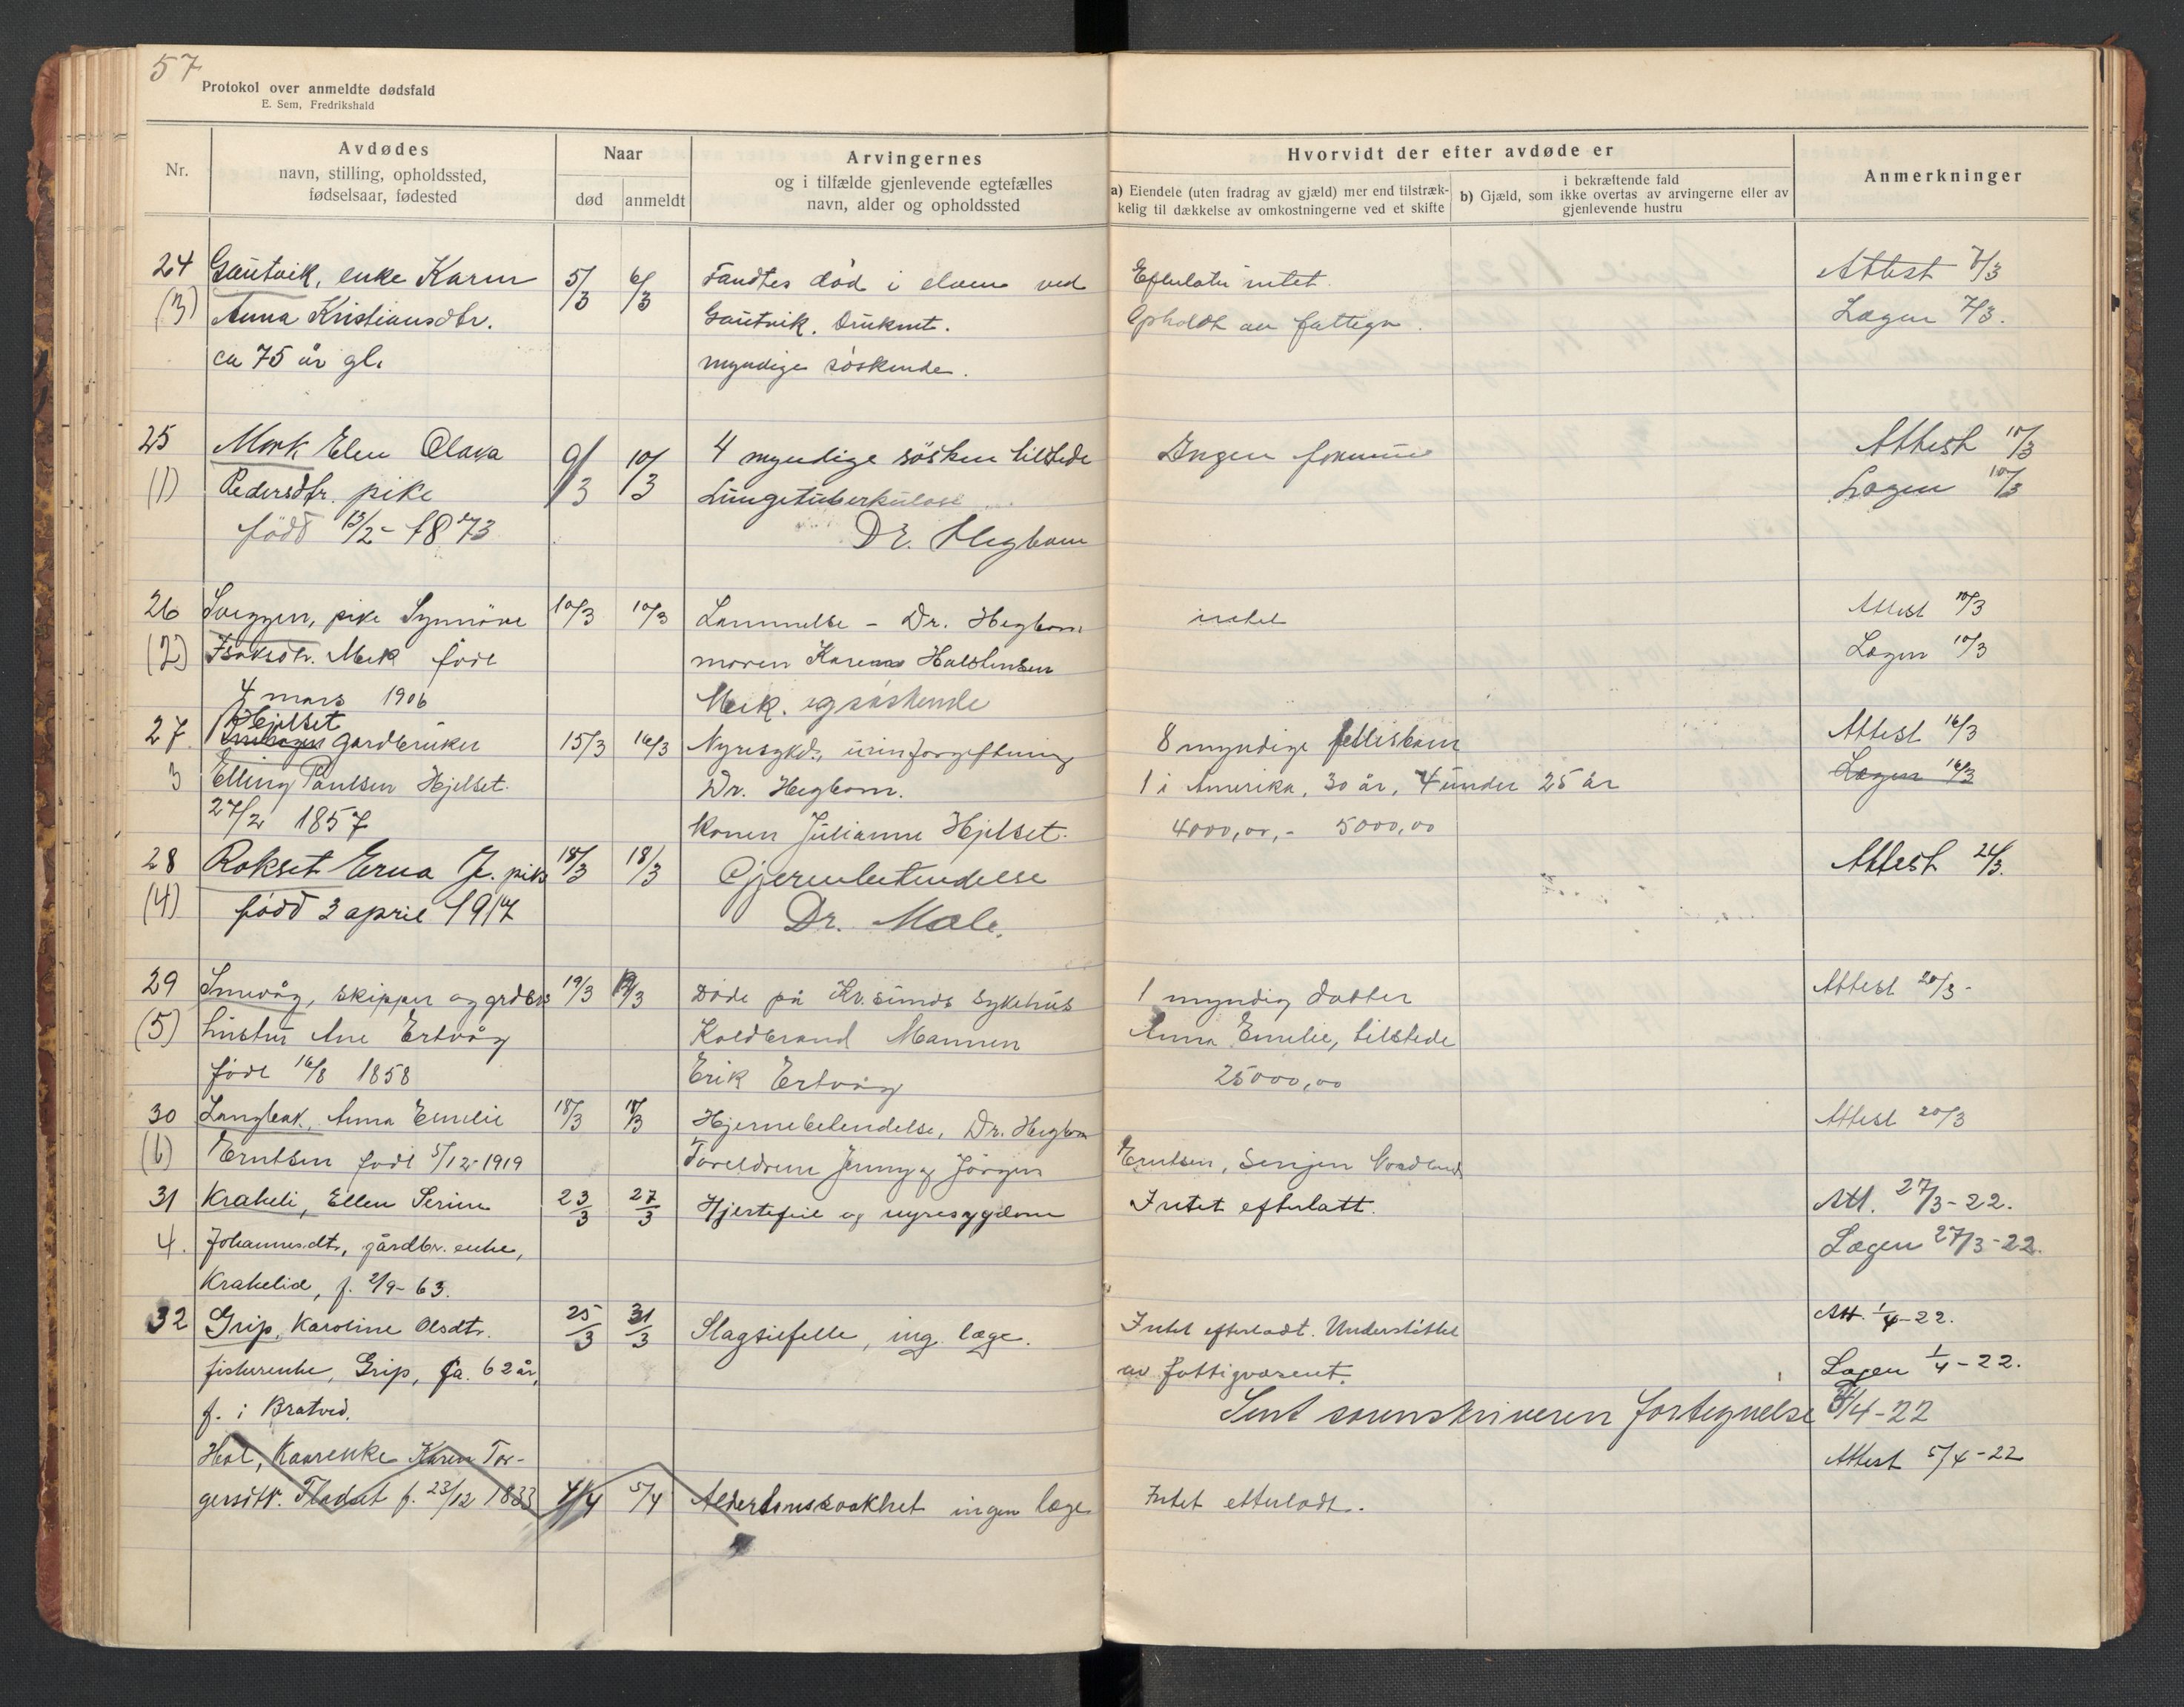 57
Protokol over anmeldte dødsfald
E. Sem, Fredrikshald
Nr.
Avdødes
navn, stilling, opholdssted,
fødselsaar, fødested
Naar
død
anmeldt
Arvingernes
og i tilfælde gjenlevende egtefælles
navn, alder og opholdssted
Hvorvidt der efter avdøde er
a) Eiendele (uten fradrag av gjæld) mer end tilstræk-
kelig til dækkelse av omkostningerne ved et skifte
i bekræftende fald
b) Gjæld, som ikke overtas av arvingerne eller av
gjenlevende hustru
Anmerkninger
24 Gautvik, enke Karen 5/3 6/3 Fandtes død i elven ved Efterlater intet. Attest 7/3
(3) Anna Kristiansdtr. Gautvik. Druknet. Opholdt av fattigv. Lægen 7/3.
ca 75 år gl. myndige søskende.
25 Mork Elen Olava 9/3 10/3 4 myndige søsken tilstede Ingen formue Attest 10/3
(1) Pedersdtr. pike Lungetuberkulose Lægen 10/3
født 13/2- 1873 Dr. Hegbom
26 Sveggen, pike Synnøve 10/3 10/3 Lammelse - Dr. Hegbom intet Attest 10/3
(2) Isaksdtr. Mek født moren Karen Halstensen Lægen 10/3
4 mars 1906 Mek. og søskende
Hjelset
27. gardbruker 15/3 16/3 Nyresykd., urinforgiftning 8 myndige fellisbarn Attest 16/3
3 Elling Paulsen Hjelset. Dr. Hegbom. 1 i Amerika, 30 år, 4 under 25 år Lægen 16/3
27/2 1857 Konen Julianne Hjelset. 4000,00,- 5000,00
28 Rokset Erna J. pike 18/3 18/3 Hjernebetendelse Attest 24/3.
(4) født 3 april 1917 Dr. Møle.
29 Smevåg, skipper og grdbr 19/3 19/3 Døde på Kr.sunds sykehus 1 myndig datter Attest 20/3-
(5) hustru Ane Ertvåg Koldbrand Mannen Anna Emelie, tilstede
født 16/8 1858 Erik Ertvåg 25000,00
30 Langbak, Anna Emelie 18/3 18/3 Hjernebetendelse, Dr. Hegbom Attest 20/3
(6) Erntsen født 5/12-1919 Foreldrene Jenny og Jørgen Erntsen, Senjen Nordland
31 Krakeli, Ellen Serine 23/3 27/3 Hjertefeil og nyresygdom Intet efterlatt. Att. 27/3-22.
4. Johannesdt., gårdbr. enke, Lægen 27/3-22.
Krakelid, f. 2/9-63.
32 Grip, Karoline Olsdtr. 25/3 31/3 Slagtilfelle, ing. læge. Intet efterladt. Understøttet Att. 1/4-22.
fiskerenke, Grip, ca. 62 år, av fattigvæsent. Lægen 1/4-22.
f. i Bratvid. Sent sorenskriveren fortegnelse 4/4-22
Hol, Kaarenke Karen Tor- Attest 5/4-22
gersdtr. f. 23/12 1833 4/4 5/4 Alderdomssvakhet ingen læge Intet efterladt.